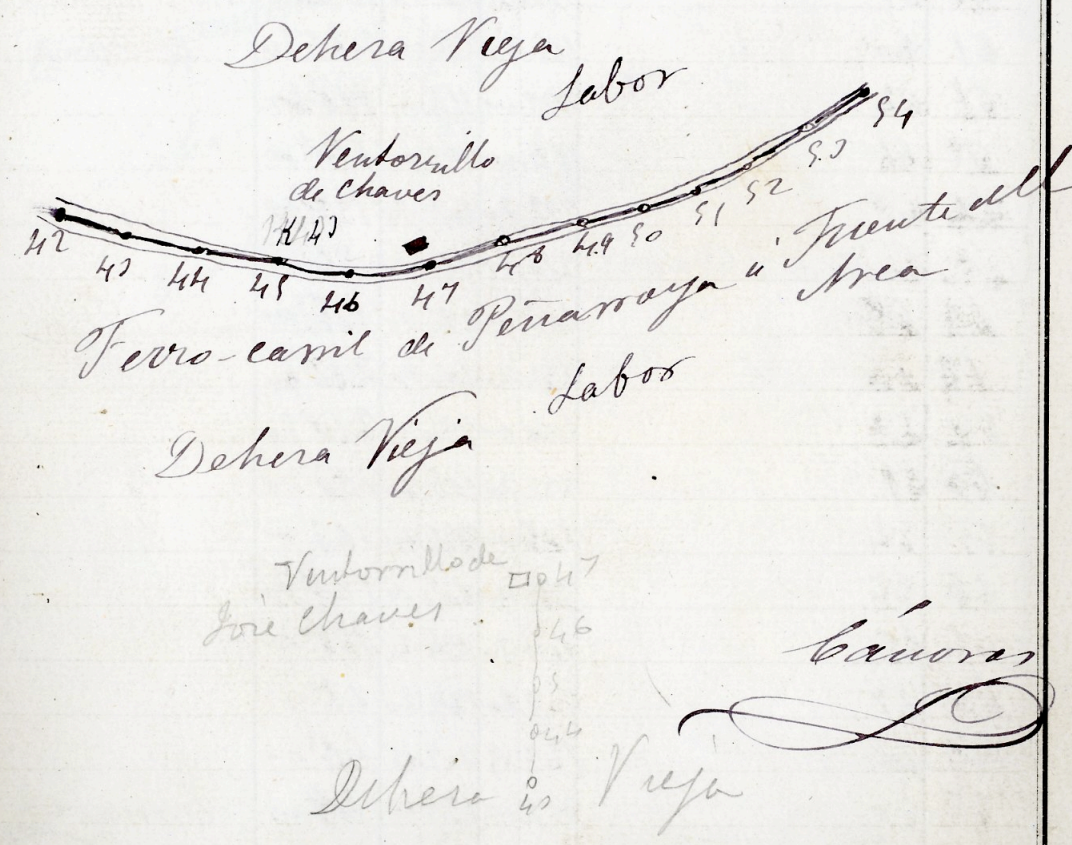 Dehera Vieja
Labor
Ventorrillo
de Chaves
K 43
42 43 44 45 46 47 48 49 50 51 52 53 54
Ferro-carril de Peñarroya a Fuente del
Arco
Labor
Dehera Vieja
Ventorrillo de
José Chaves
47
46
45
44
43
Dehera Vieja
Cánovas